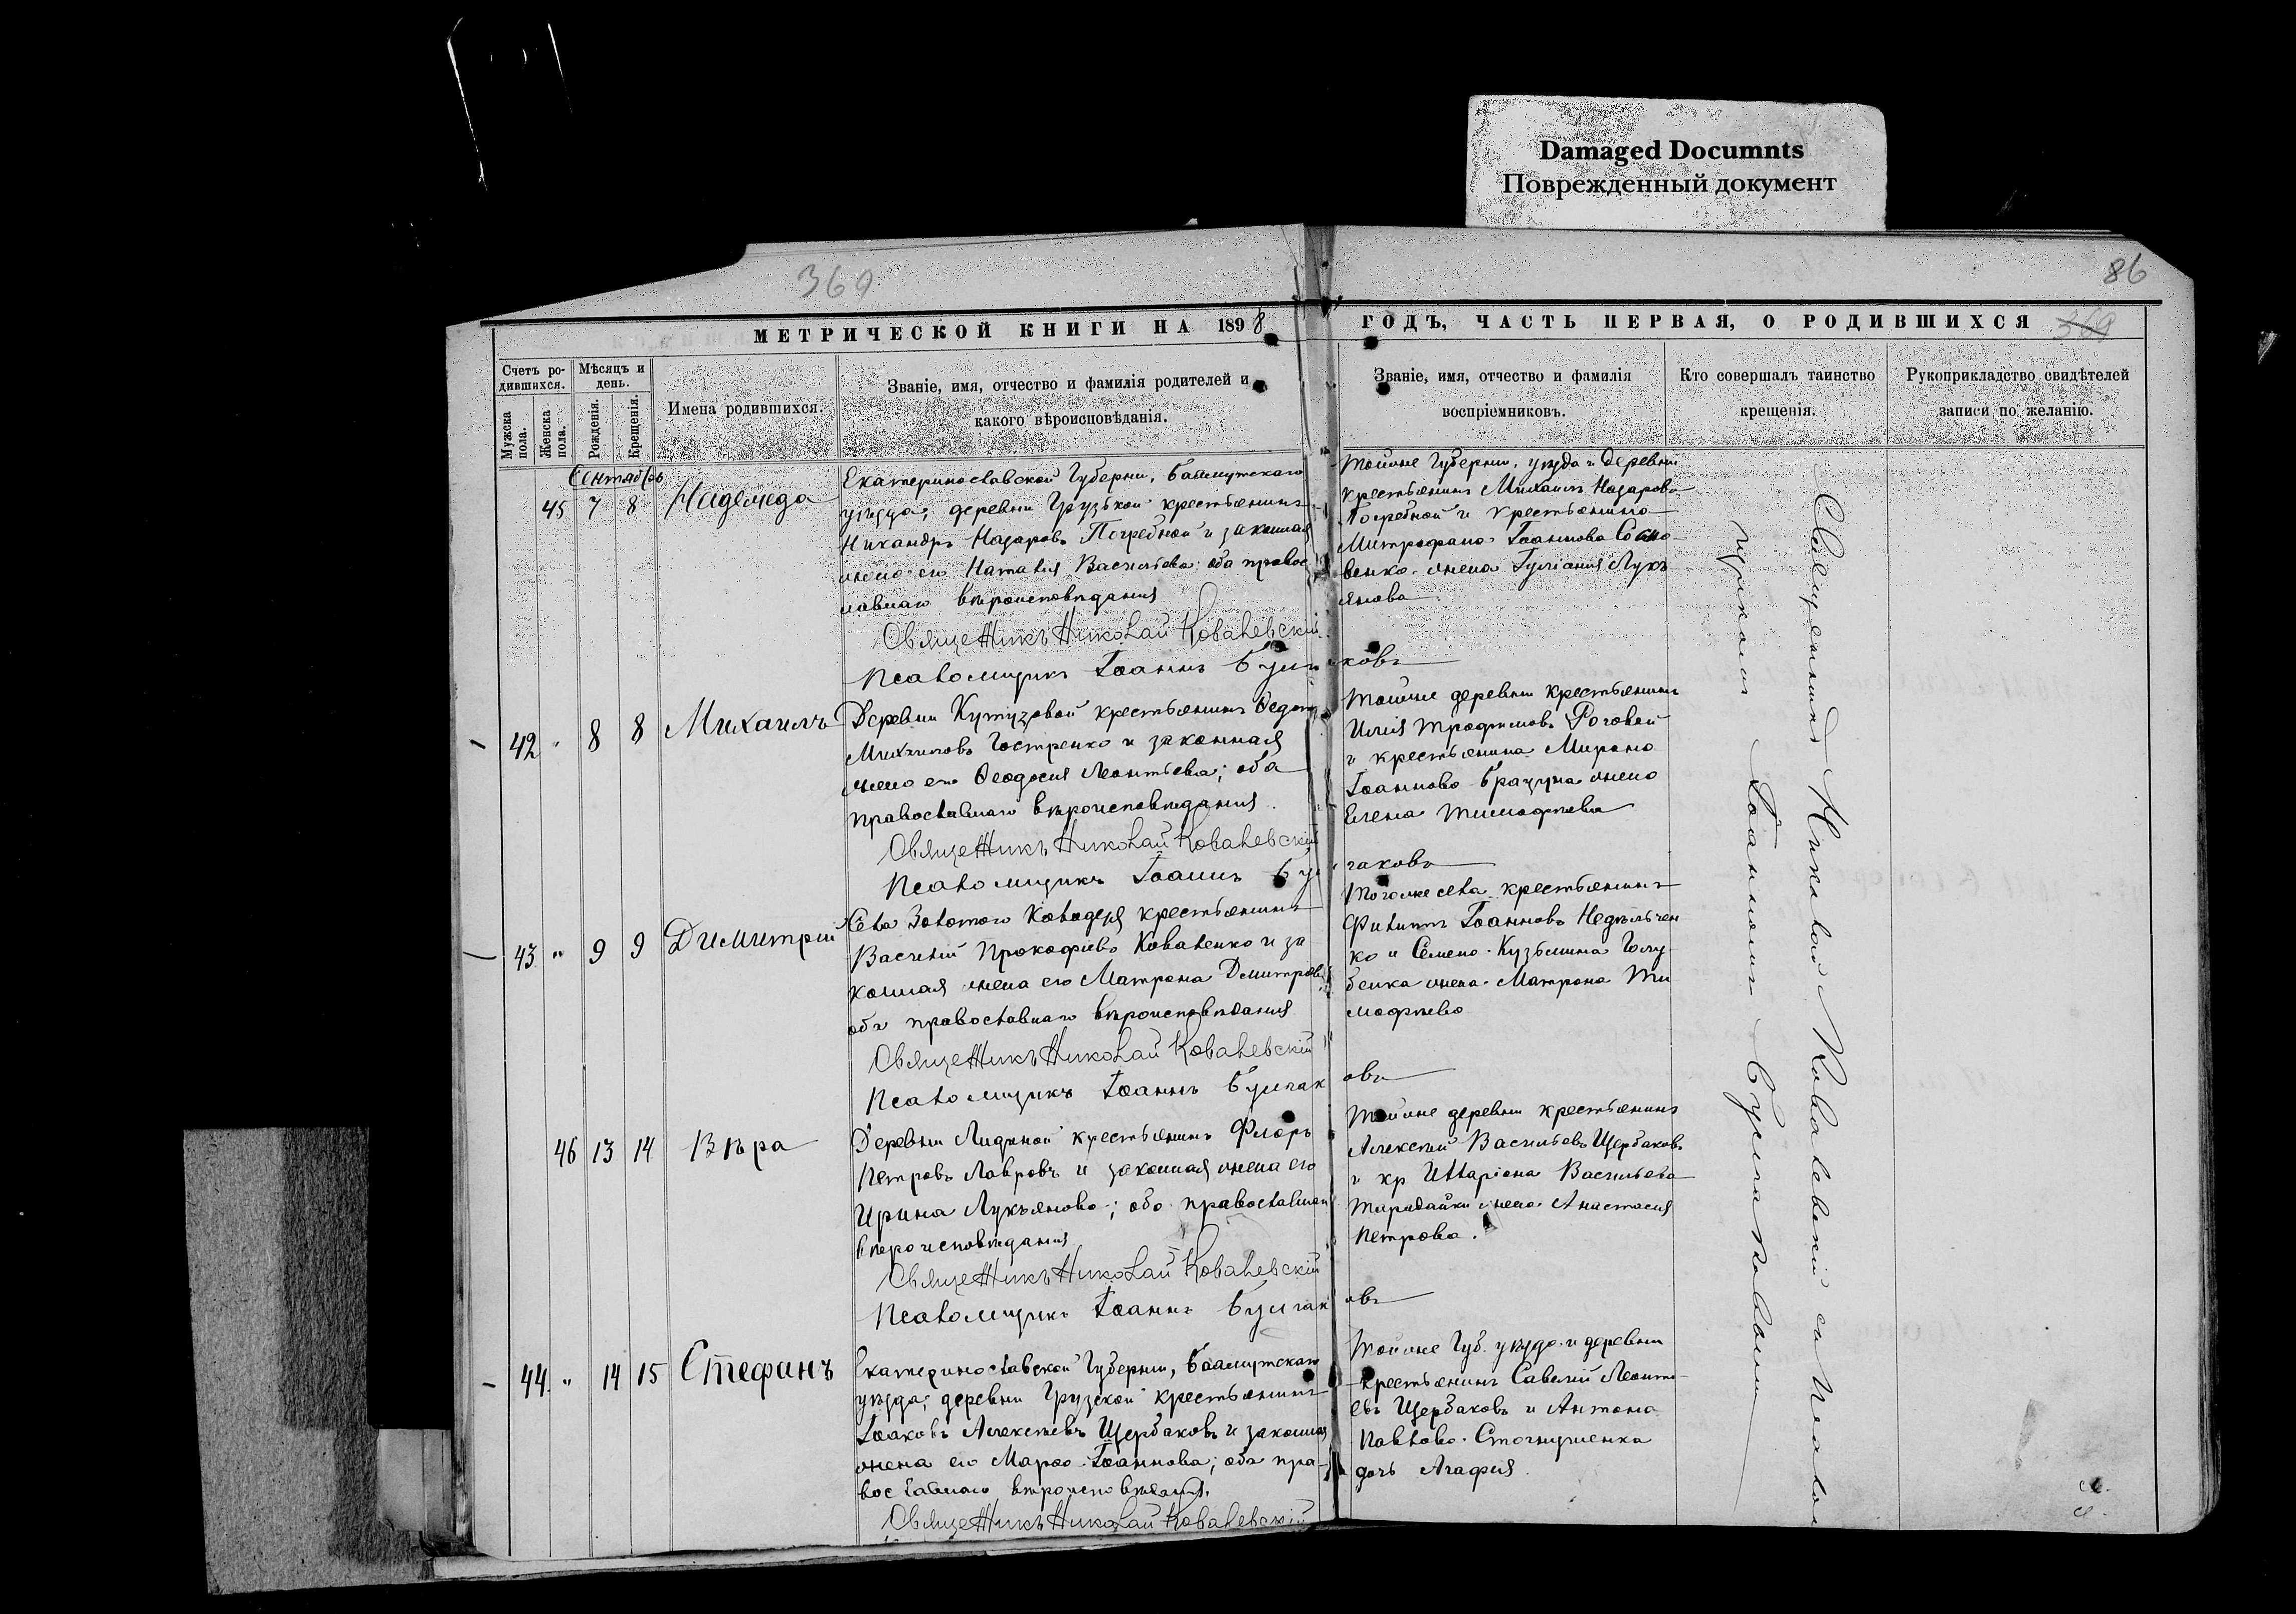 Damaged Documnts
Поврежденный документ
369
86
МЕТРИЧЕСКОЙ КНИГИ НА 1898
ГОДЪ, ЧАСТЬ ПЕРВАЯ, О РОДИВШИХСЯ
369
Счетъ ро-
дившихся.
Мужска
пола.
Женска
пола.
Мѣсяцъ и
день.
Рожденія.
Крещенія.
Имена родившихся.
Званіе, имя, отчество и фамилія родителей и
какого вѣроисповѣданія.
Званіе, имя, отчество и фамилія
воспріемниковъ.
Кто совершалъ таинство
крещенія.
Рукоприкладство свидѣтелей
записи по желанію.
Сентябрь
45 7 8 Надежда
Екатеринославской Губерніи, Бахмутскаго
уѣзда; деревни Грузской крестьянинъ
Никандръ Назаровъ Погребной и законная
жена его Наталія Васильева; оба правос
лавнаго вѣроисповѣданія
Тойже Губерніи, уѣзда и деревни
крестьянинъ Михаилъ Назаровъ
Погребной и крестьянина
Митрофана Іоаннова
венка жена Іуліанія Лукь
янова
Священникъ Николай Ковалевскій
Псаломщикъ Іоаннъ Булгаковъ
42 " 8 8 Михаилъ
Деревни Кутузовой крестьянинъ Федотъ
Михаиловъ Гостренко и законная
жена его Феодосія Леонтьева; оба
православнаго вѣроисповѣданія.
Тойже деревни крестьянинъ
Илія Трофимовъ Роговей
и крестьянина Мирона
Іоаннова жена
Елена Тимофѣева
Священникъ Николай Ковалевскій
Псаломщикъ Іоаннъ Булгаковъ
43 " 9 9 Димитрій
Села Золотого Колодезя крестьянинъ
Василій Прокофіевъ Коваленко и за
конная жена его Матрона Дмитрова
оба православнаго вѣроисповѣданія
Тогоже села крестьянинъ
Филиппъ Іоанновъ Недѣльчен
ко и Семена Кузьмина Голу
бенка жена Матрона Ти
мофѣева
Священникъ Николай Ковалевскій
Псаломщикъ Іоаннъ Булгаковъ
46 13 14 Вѣра
Деревни Лидиной крестьянинъ Флоръ
Петровъ Лавровъ и законная жена его
Ирина Лукьянова; оба православнаго
вѣроисповѣданія
Тойже деревни крестьянинъ
Алексѣй Васильевъ Щербаковъ
и кр Илларіона Васильева
жена Анастасія
Петрова.
Священникъ Николай Ковалевскій
Псаломщикъ Іоаннъ Булгаковъ
44 " 14 15 Стефанъ
Екатеринославской Губерніи, Бахмутскаго
уѣзда; деревни Грузской крестьянинъ
Іоаковъ Алексѣевъ Щербаковъ и законная
жена его Марфа Іоаннова; оба пра-
вославнаго вѣроисповѣданія.
Тойже Губ. уѣзда и деревни
крестьянинъ Савелій Леонть-
евъ Щербаковъ и Антона
Павлова
дочь Агафія.
Священникъ Николай Ковалевскій
Священникъ Николай Ковалевскій съ Псалом
щикомъ Іоанномъ Булгаковымъ